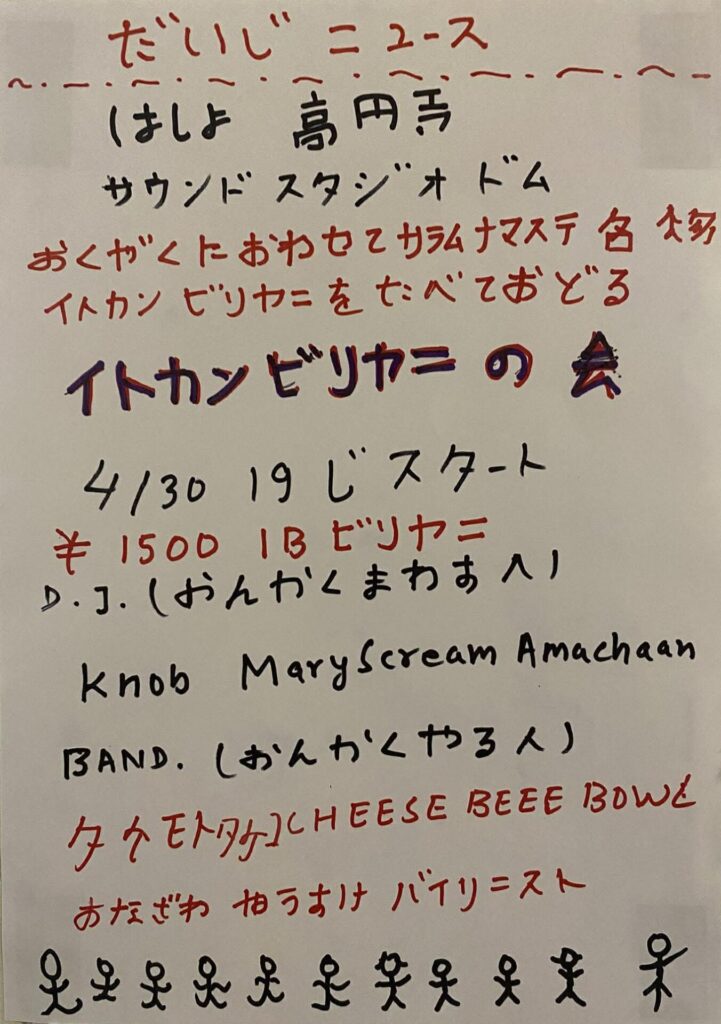 だいじ ニュース
はしよ 高円寺
サウンド スタジオ ドム
おくがくに おわせて カラム ナマステ 名
イトカン ビリヤニを たべて おどる
イトカン ビリヤニ の 会
4/30 19 じ スタート
¥ 1500 1B ビリヤニ
D.J. (おんがくまわす人)
Knob MaryScream Amachaan
BAND. (おんがくやる人)
タケモトタケコCHEESE BEEE BOWと
おなざわ ゆうすけ バイリニスト